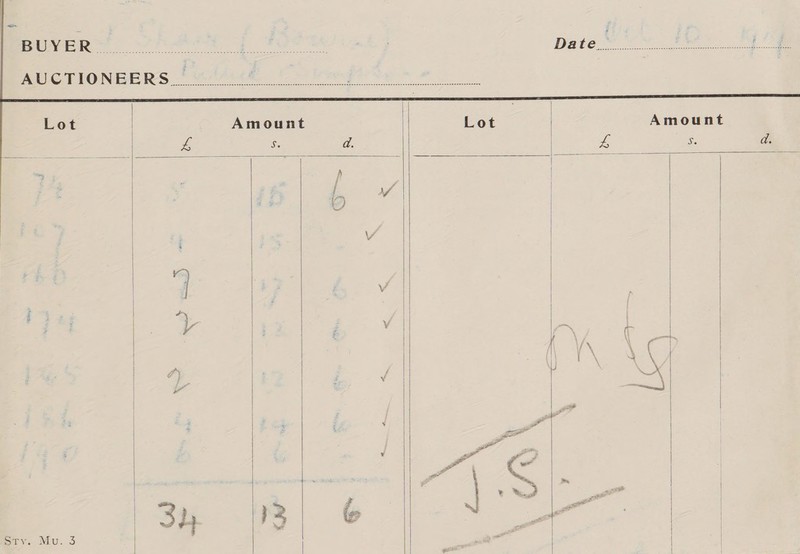 BUYER J Shaw (Bourne)
Date Oct 10
AUCTIONEERS
Lot Amount Lot Amount
£ s. d. £ s. d.
74 5 15 6 ✓
107 4 15 - ✓
160 7 17 6 ✓
174 2 12 6 ✓
185 2 12 6 ✓
186 4 14 6 ✓
190 6 6 - ✓
OK
J.S.
34 13 6
STY. MU. 3